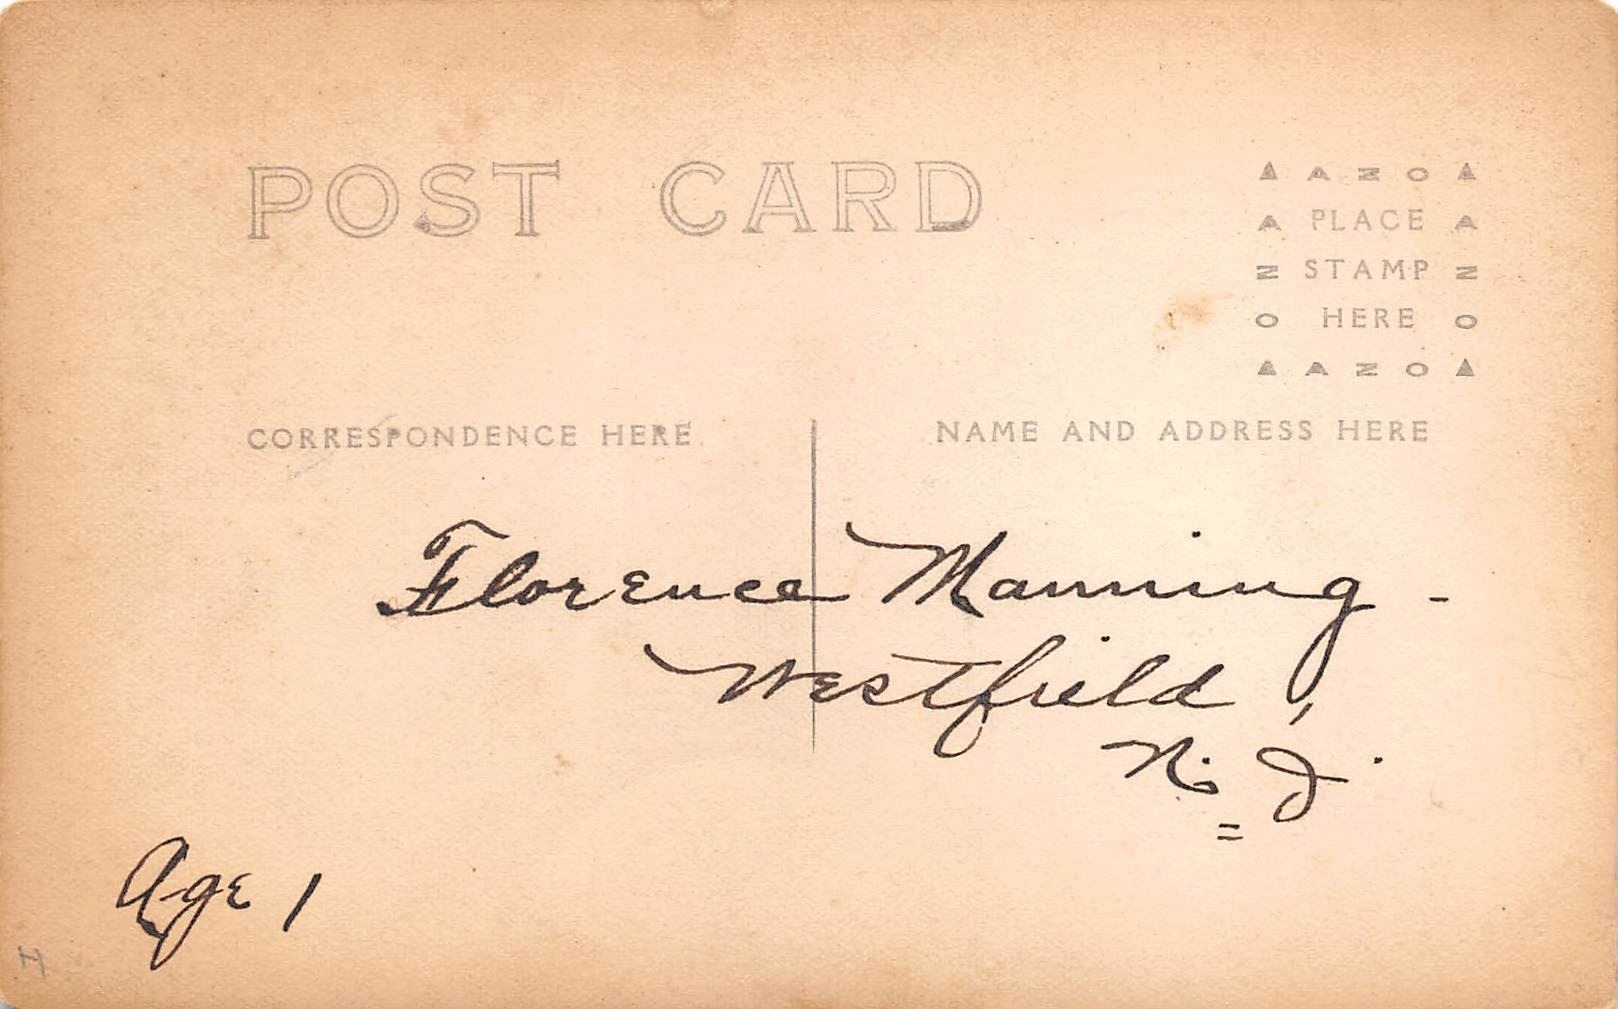 POST CARD
▲ A Z O ▲
A PLACE A
Z STAMP Z
O HERE O
▲ A Z O ▲
CORRESPONDENCE HERE
NAME AND ADDRESS HERE
Florence Manning -
Westfield,
N. J.
Age 1